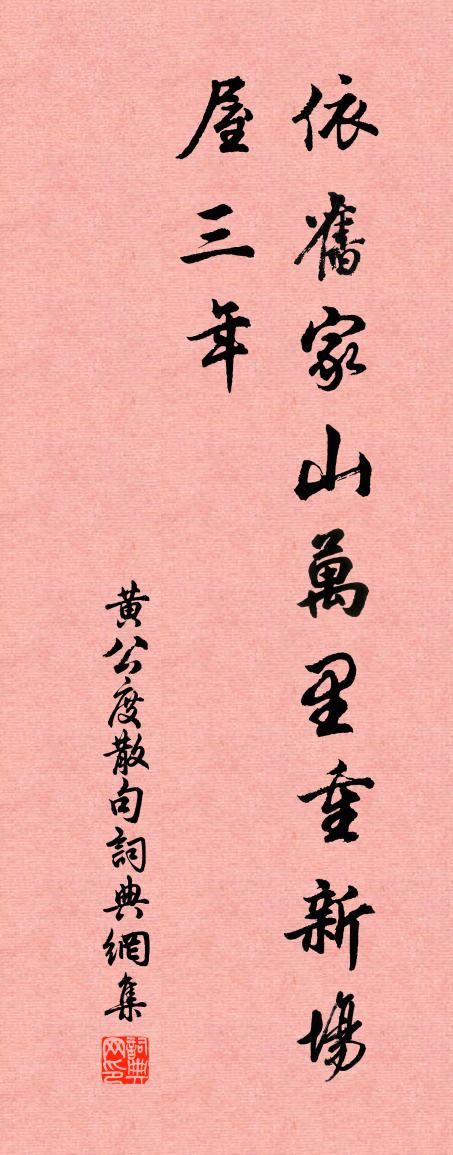 依舊家山萬里重新場
屋三年
黄公度散句詞典網集
詞典网印